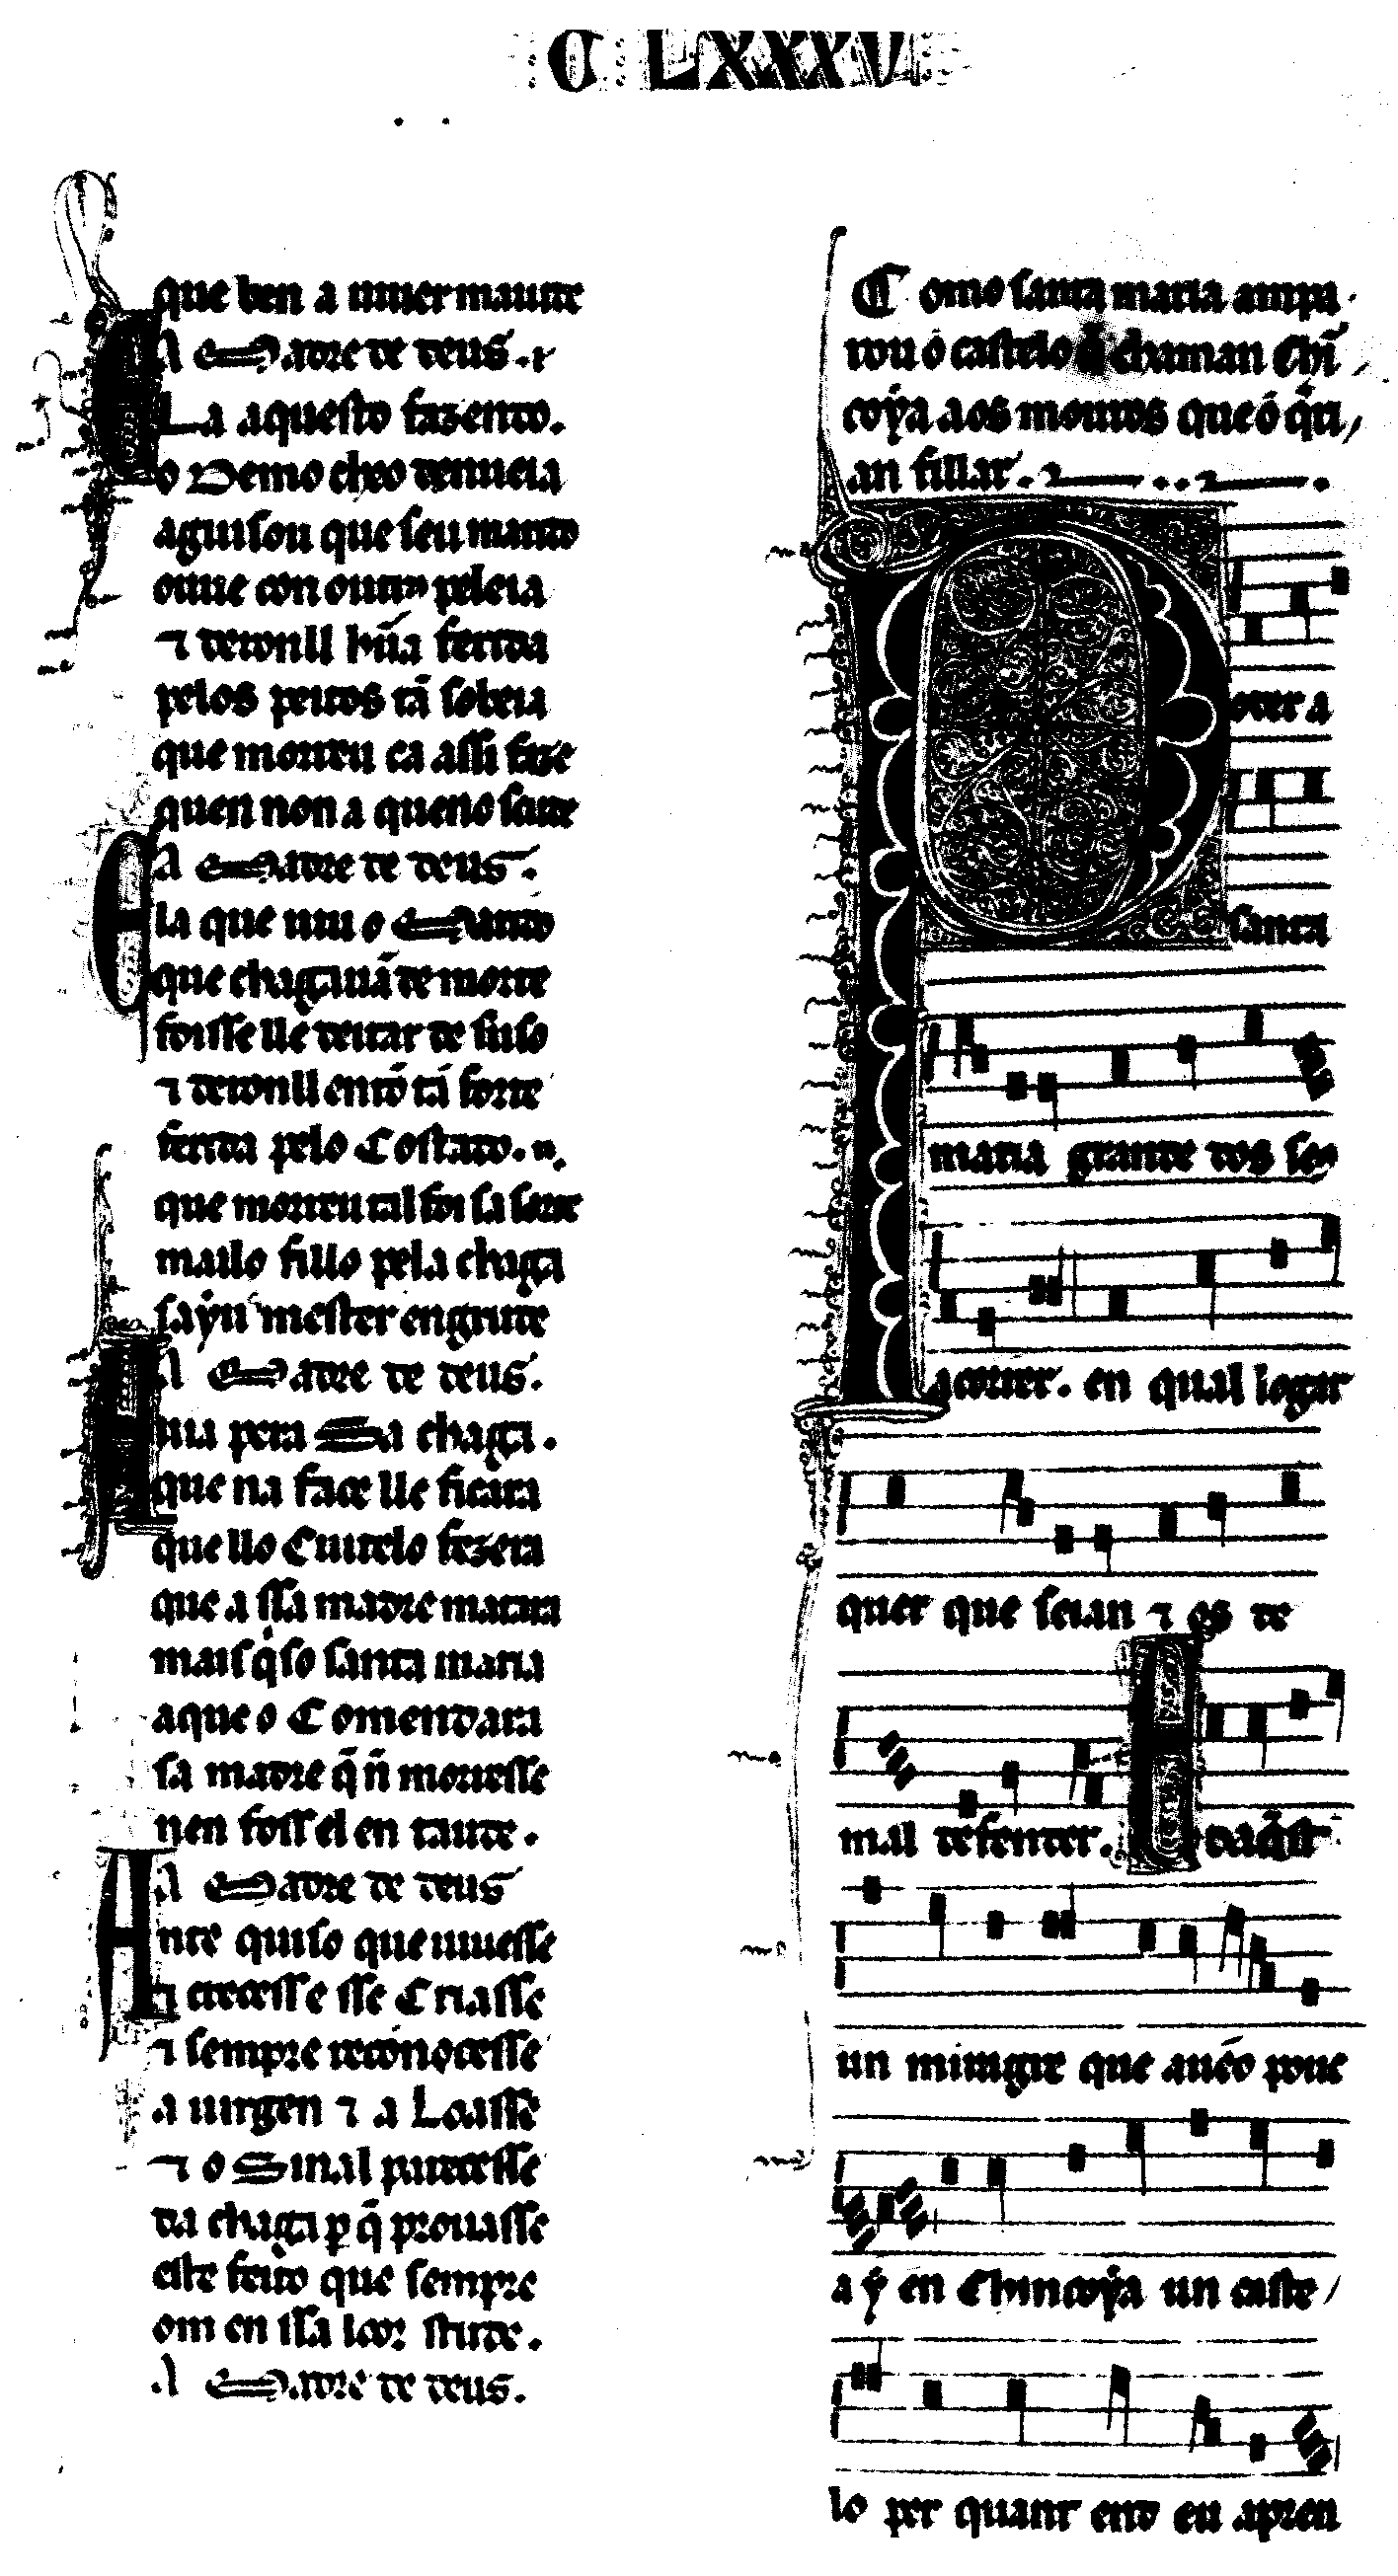 C LXXXV
que ben a uiuer maunt
A Madre de deus. &
Ela aquesto fazendo.
o Demo cho denueia
aguisou que seu marido
ouue con outro peleia
⁊ deronll hũa ferida
pelos peitos tã sobeia
que morreu ca assi faze
quen non a queno saude
A Madre de deus.
Ela que uiu o Marido
que chagauã de morte
foisse lle deitar de suso
⁊ deronll entõ tã forte
ferida pelo Costado.
que morreu tal foi sa sorte
mailo fillo pela chaga
saýu mester engrude
A Madre de deus.
Auia pera Sa chaga.
que na face lle ficara
que llo Cuitelo fezera
que a ssa madre matara
mais q̇so santa maria
aque o Comendara
sa madre q̃ ñ morresse
nen foss el en taude.
A Madre de deus
Ante quiso que uiuesse
⁊ creçesse sse Criasse
⁊ sempre reconoçesse
a uirgen ⁊ a Loasse
⁊ o Sinal pareçesse
da chaga p̱ q̃ prouasse
este feito que sempre
om en ssa loor stude.
A Madre de deus.
Como santa maria ampa
rou o castelo q̃ chaman Chĩ
coýa aos mouros que o q̇ri
an fillar.
Poder a
santa
maria grande dos seu
acorrer. en qual logar
quer que seian ⁊ os de
mal defender. E daq̃st
un miragre que auẽo pouc
a ý en Chincoýa un caste
lo per quant end eu apren